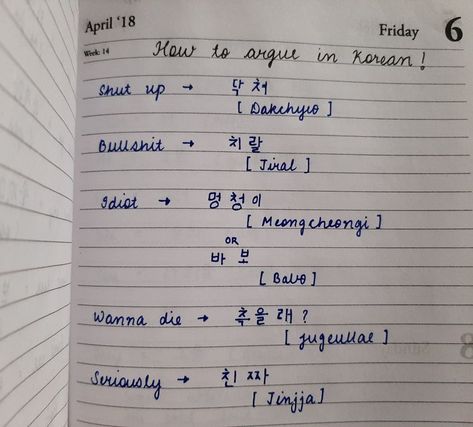 April '18 Friday 6
Week: 14
How to argue in Korean!
Shut up → 닥쳐
[Dakchyeo]
Bullshit → 치랄
[Jiral]
Idiot → 멍청이
[Meongcheongi]
OR
바보
[Babo]
Wanna die → 축을래?
[jugeullae]
Seriously → 친짜
[Jinjja]